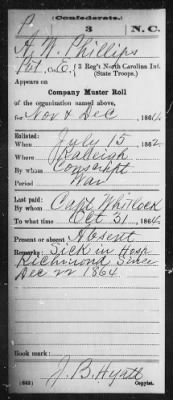 (Confederate.)
P 3 N.C.
A. W. Phillips
Pvt, Co. E, 3 Reg't North Carolina Inf.
(State Troops.)
Appears on
Company Muster Roll
of the organization named above,
for Nov & Dec, 1864.
Enlisted:
When July 15, 1862.
Where Raleigh
By whom Conscript
Period War
Last paid:
By whom Capt. Whitlock
To what time Oct 31, 1864.
Present or absent Absent
Remarks: Sick in Hosp
Richmond Since
Dec 22 1864
Book mark:
J. B. Hyatt
(642) Copyist.